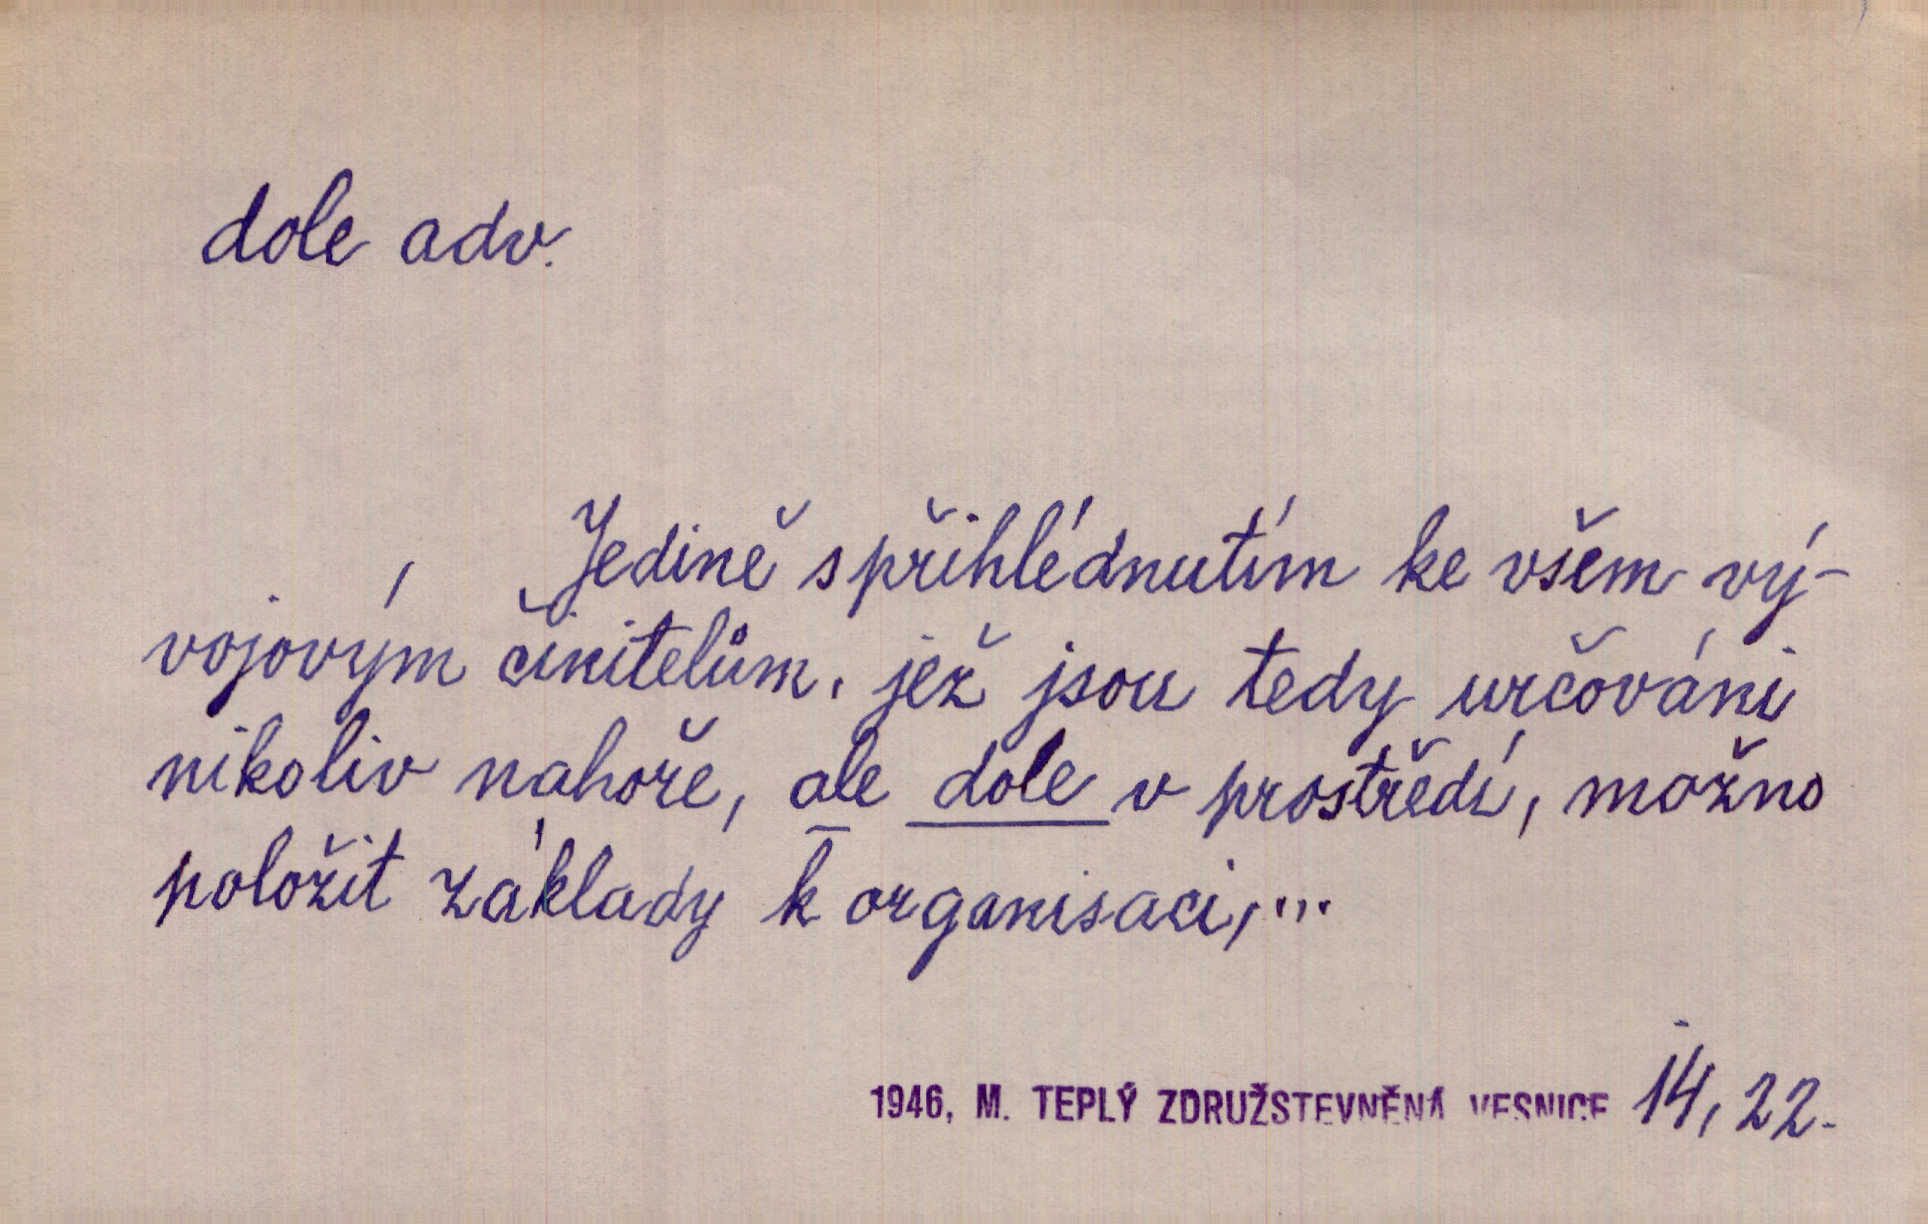 dole adv.
Jedině s přihlédnutím ke všem vý-
vojovým činitelům, jež jsou tedy určováni
nikoliv nahoře, ale dole v prostředí, možno
položit základy k organisaci,...
1946, M. TEPLÝ ZDRUŽSTEVNĚNÁ VESNICE 14, 22.